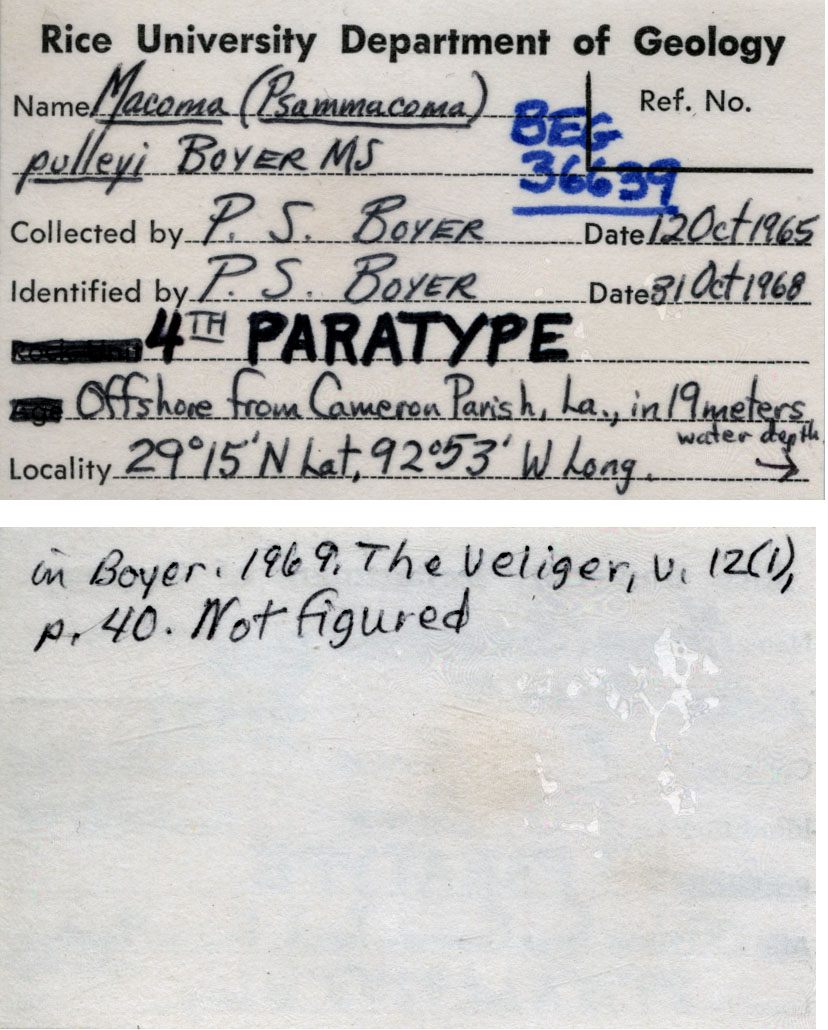 Rice University Department of Geology
Name Macoma (Psammacoma)
Ref. No.
pulleyi BOYER MS
BEG
36639
Collected by P. S. BOYER Date 12 Oct 1965
Identified by P. S. BOYER Date 31 Oct 1968
4TH PARATYPE
Age Offshore from Cameron Parish, La., in 19 meters
water depth
Locality 29°15' N Lat, 92°53' W Long. →
in Boyer. 1969. The Veliger, v. 12(1),
p. 40. Not figured